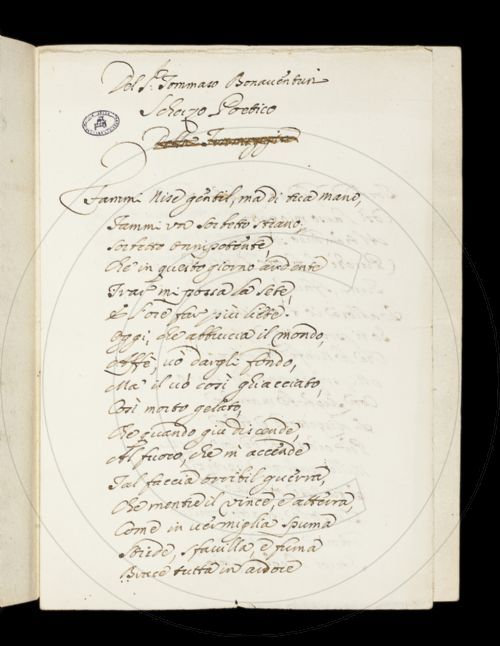 Del Sr. Tommaso Bonaventuri
Scherzo Poetico
Fammi Nise gentil, ma di tua mano,
Fammi un sorbetto strano,
Sorbetto onnipotente,
Che in questo giorno ardente
Trar mi possa la sete,
E l'ore far più liete.
Oggi, che abbrucia il mondo,
Affè, vo' dargli fondo,
Ma il vo' così ghiacciato,
Così molto gelato,
Che quando giù discende,
Al fuoco, che m'accende
Tal faccia orribil guerra,
Che mentre il vince, e atterra,
Come in vermiglia spuma
Stride, sfavilla, e fuma
Brace tuffata in ardore